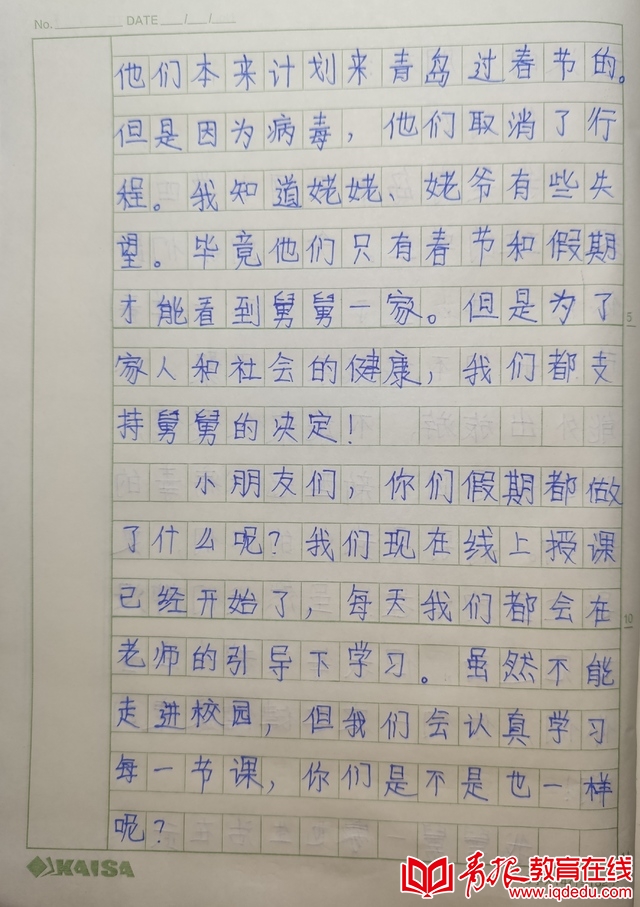 No. DATE / /
他们本来计划来青岛过春节的。
但是因为病毒，他们取消了行
程。我知道姥姥、姥爷有些失
望。毕竟他们只有春节和假期
才能看到舅舅一家。但是为了
5
家人和社会的健康，我们都支
持舅舅的决定！
小朋友们，你们假期都做
了什么呢？我们现在线上授课
已经开始了，每天我们都会在
10
老师的引导下学习。虽然不能
走进校园，但我们会认真学习
每一节课，你们是不是也一样
呢？
KAISA
青报教育在线
www.iqdedu.com